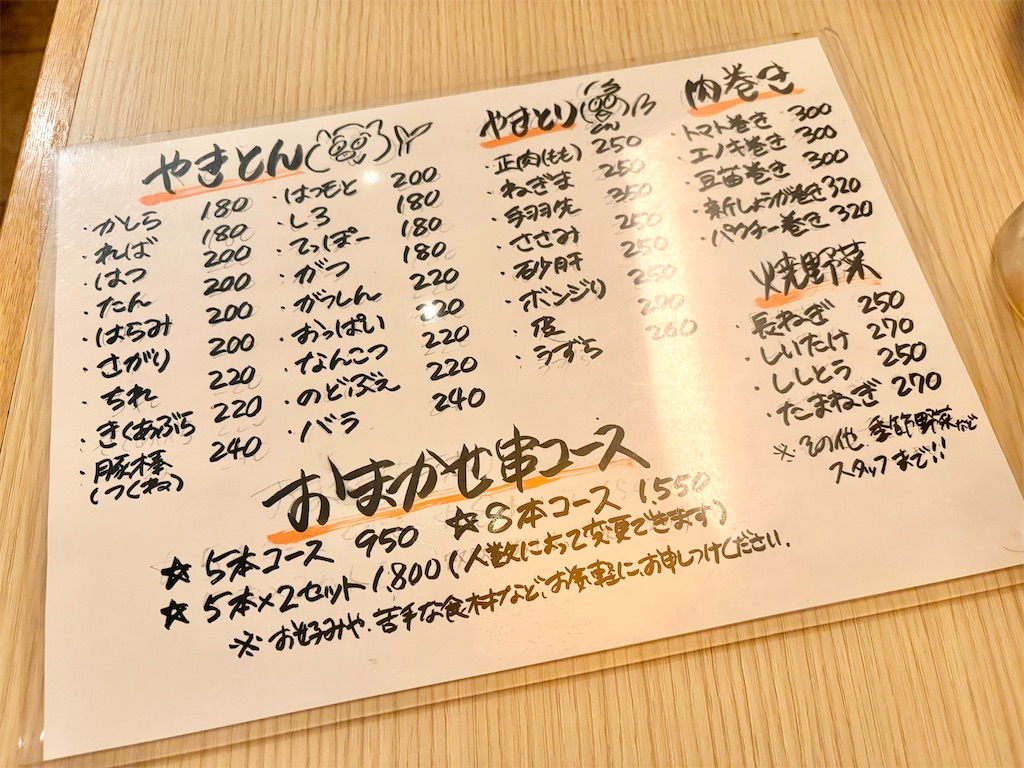 やきとん
・かしら 180
・ればー 180
・はつ 200
・たん 200
・はらみ 200
・さがり 200
・ちれ 220
・きくあぶら 220
・豚棒(つくね) 240
・はつもと 200
・しろ 180
・てっぽー 180
・がつ 180
・がつしん 220
・おっぱい 220
・なんこつ 220
・のどぶえ 220
・バラ 240
やきとり
・正肉(もも) 250
・ねぎま 250
・手羽先 350
・ささみ 250
・砂肝 250
・ボンジリ 250
・皮
・うずら
肉巻き
・トマト巻き 300
・エノキ巻き 300
・豆苗巻き 300
・新しょうが巻き 320
・パクチー巻き 320
焼野菜
・長ねぎ 250
・しいたけ 270
・ししとう 250
・たまねぎ 270
※その他、季節野菜など
スタッフまで!!
おまかせ串コース
☆5本コース 950 ☆8本コース 1.550
☆5本×2セット 1.800(人数によって変更できます)
※お好みや、苦手な食材など、お気軽にお申しつけください.